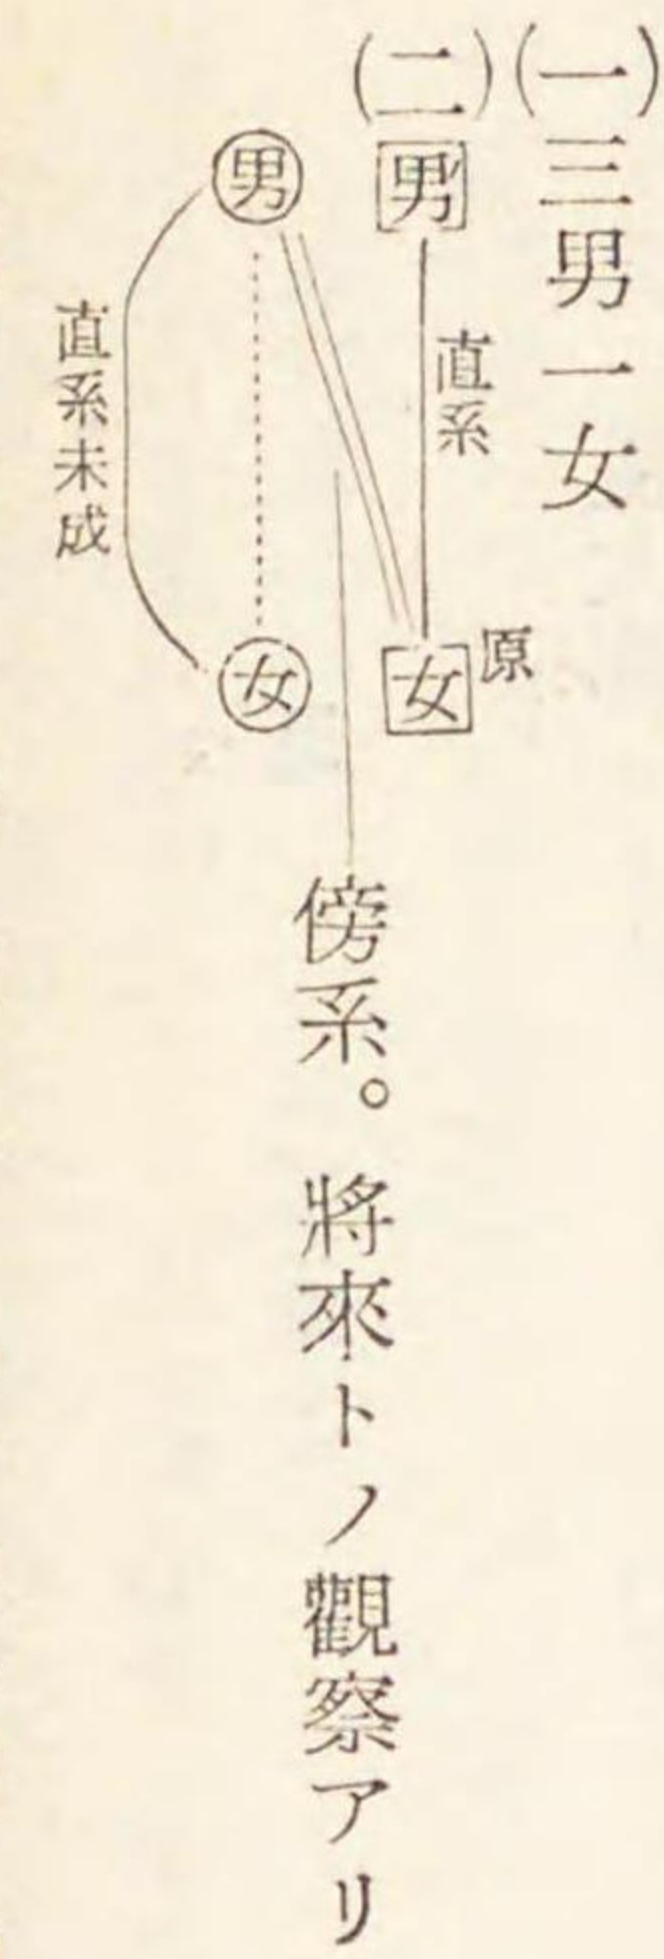 (一)三男一女
(二)男
直系
原
女
男
女
直系未成
傍系。將來トノ觀察アリ